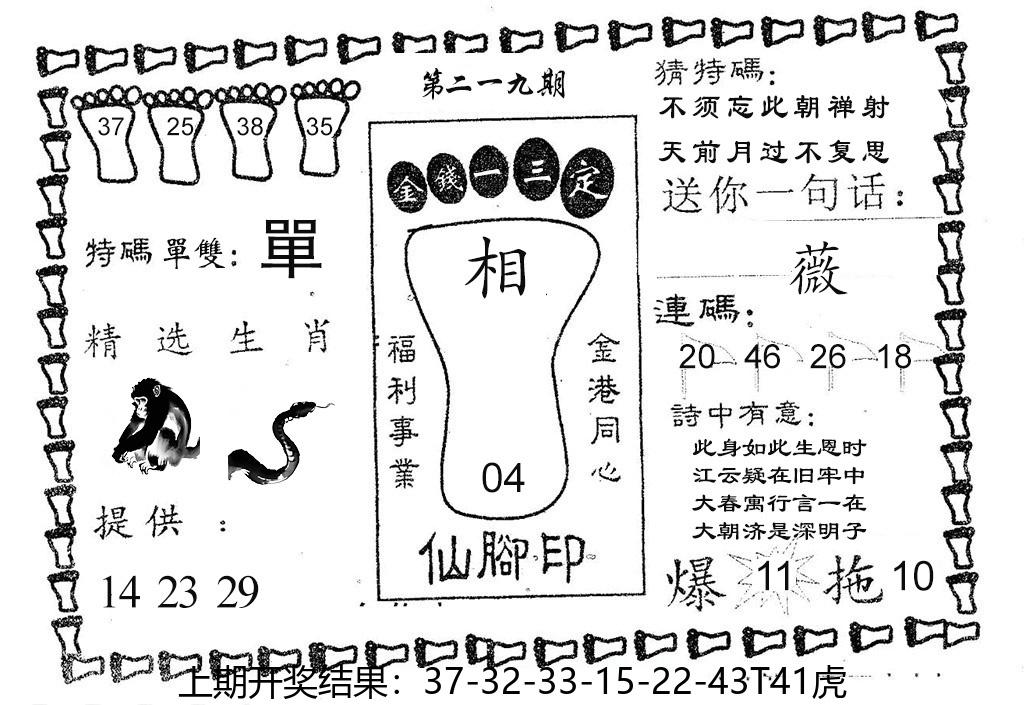 第二一九期
37 25 38 35
特碼單雙：單
精选生肖
提供：
14 23 29
金錢一三定
相
福利事業
金港同心
04
仙腳印
猜特碼：
不须忘此朝禅射
天前月过不复思
送你一句话：
薇
連碼：
20 46 26 18
詩中有意：
此身如此生恩时
江云疑在旧牢中
大春寓行言一在
大朝济是深明子
爆 11 拖 10
上期开奖结果：37-32-33-15-22-43T41虎